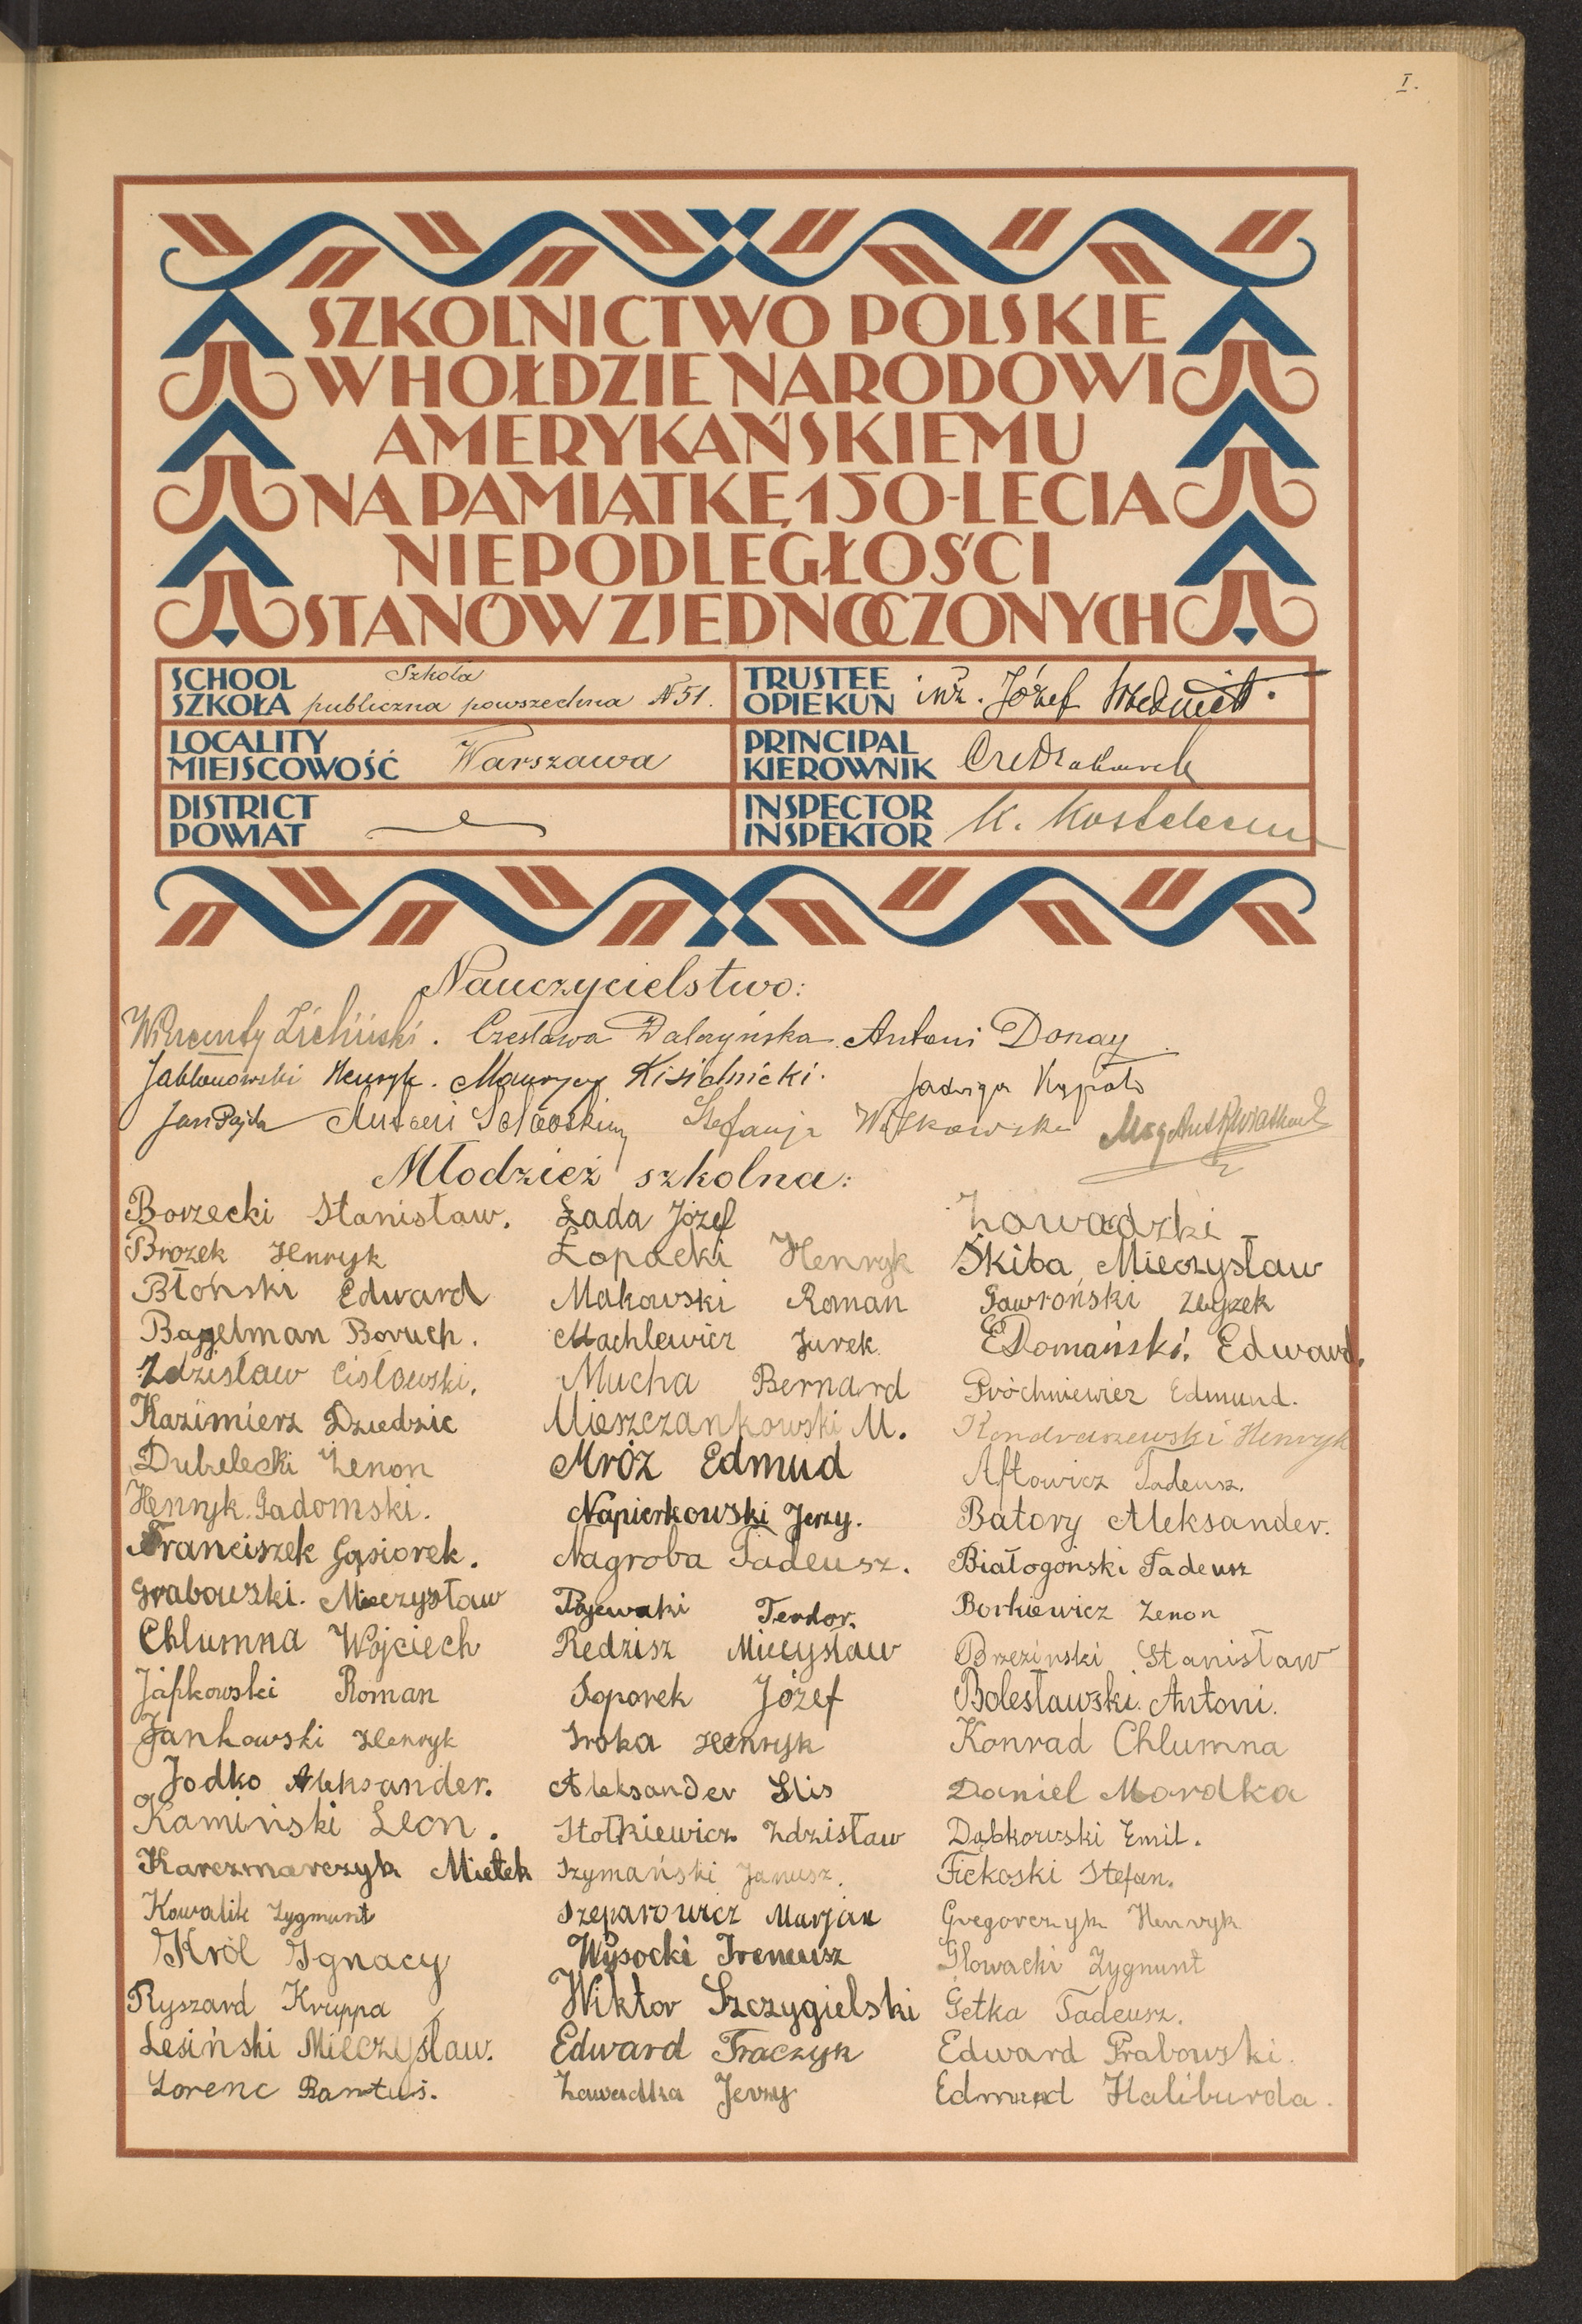 I.
SZKOLNICTWO POLSKIE
W HOŁDZIE NARODOWI
AMERYKAŃSKIEMU
NA PAMIĄTKĘ 150-LECIA
NIEPODLEGŁOŚCI
STANÓW ZJEDNOCZONYCH
SCHOOL
SZKOŁA
Szkoła
publiczna powszechna N 51.
TRUSTEE
OPIEKUN
inż. Józef
LOCALITY
MIEJSCOWOŚĆ
Warszawa
PRINCIPAL
KIEROWNIK
DISTRICT
POWIAT
INSPECTOR
INSPEKTOR
K.
Nauczycielstwo:
Wincenty Zieliński. Czesława Antoni Donay
Jabłonowski Henryk. Maurycy Kisielnicki. Jadwiga
Jan Pajda Antoni Stefanja Witkowska
Młodzież szkolna:
Borzecki Stanisław.
Brozek Henryk
Błoński Edward
Bagelman Boruch.
Zdzisław Cisłowski.
Kazimierz Dziedzic
Dubielecki Zenon
Henryk Gadomski.
Franciszek Gąsiorek.
Grabowski. Mieczysław
Chlumna Wojciech
Japkowski Roman
Jankowski Henryk
Jodko Aleksander.
Kamiński Leon.
Karczmarczyk Mietek
Kowalik Zygmunt
Król Ignacy
Ryszard Kruppa
Lesiński Mieczysław.
Lorenc Rantuś.
Łada Józef
Łopacki Henryk
Makowski Roman
Machlewicz Jurek
Mucha Bernard
Mieszczankowski M.
Mróz Edmud
Napierkowski Jerzy.
Nagroba Tadeusz.
Pajewski Teodor.
Redzisz Miecysław
Soporek Józef
Sroka Henryk
Aleksander Slis
Stołkiewicz Zdzisław
Szymański Janusz.
Szeparowicz Marjan
Wysocki Ireneusz
Wiktor Szczygielski
Edward Traczyk
Zawadka Jerzy
Zawadzki
Skiba Mieczysław
Gawroński Zbyszek
Domański. Edward.
Próchniewicz Edmund.
Kondraszewski Henryk
Aftowicz Tadeusz.
Batory Aleksander.
Białogoński Tadeusz
Borkiewicz Zenon
Brzeziński Stanisław
Bolesławski. Antoni.
Konrad Chlumna
Daniel Mordka
Dąbkowski Emil.
Fickoski Stefan.
Gregorczyk Henryk
Głowacki Zygmunt
Getka Tadeusz.
Edward Grabowski.
Edmund Haliburda.